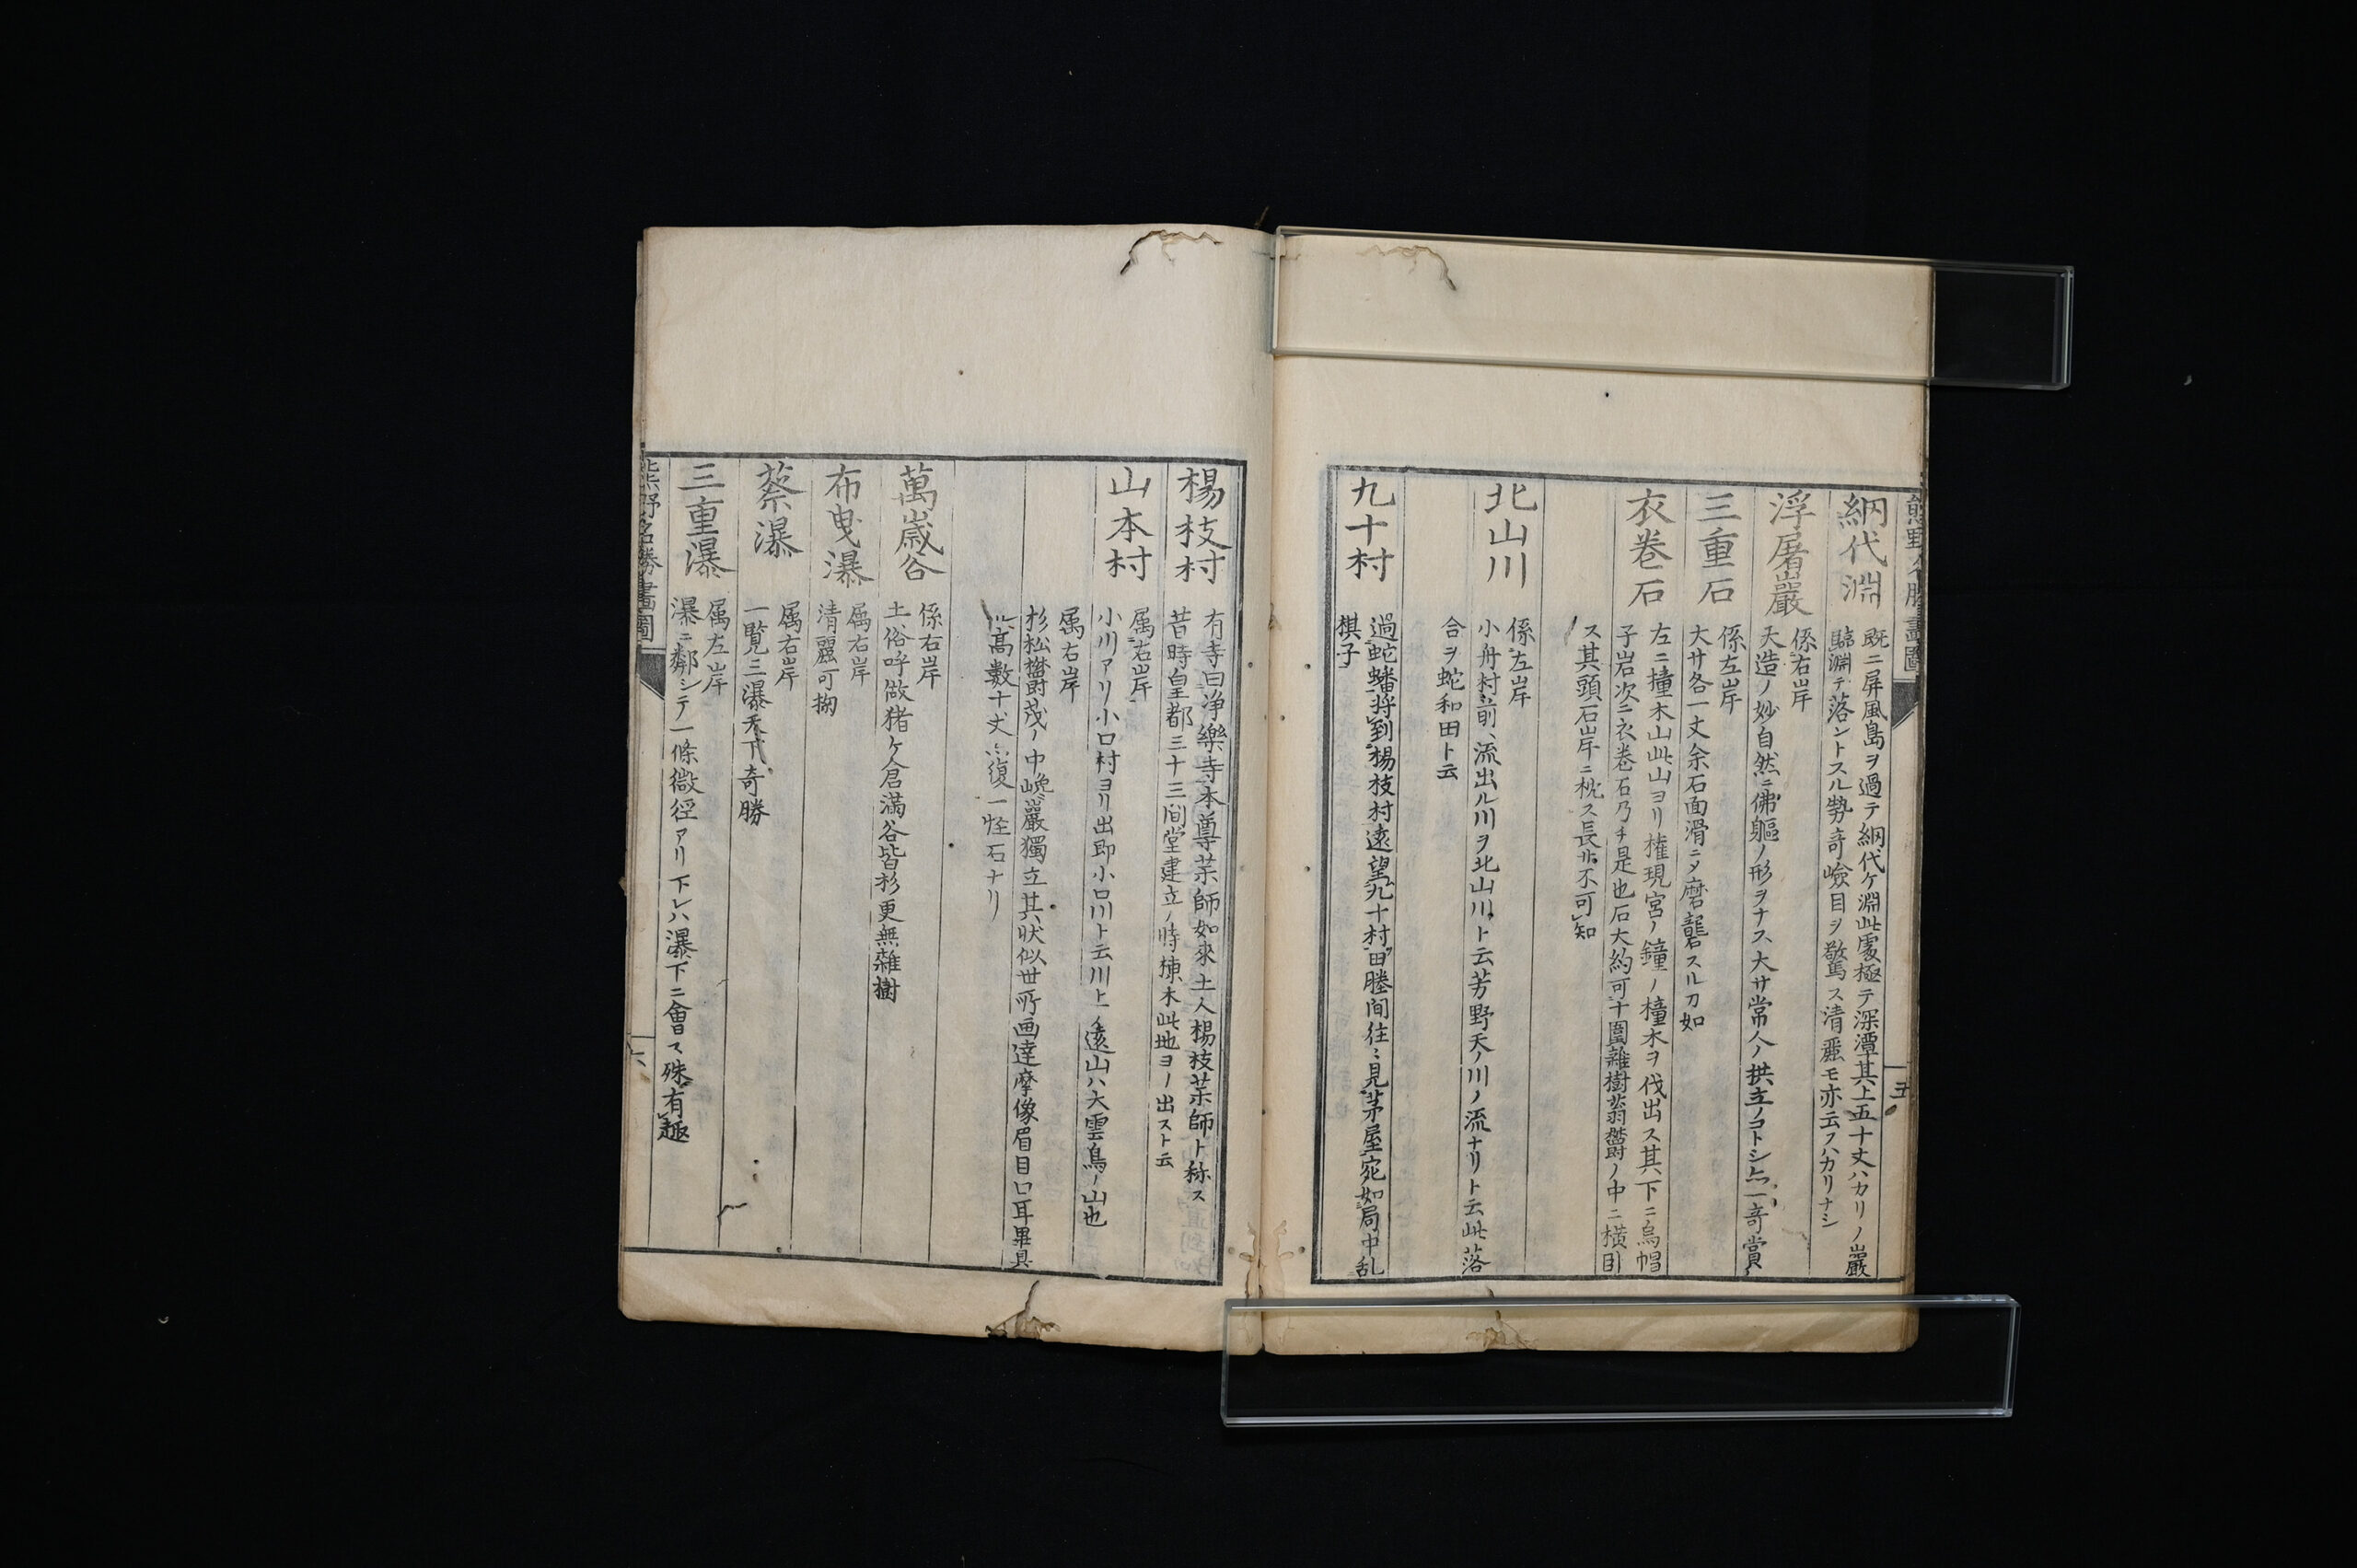 熊野名勝畫圖
五
網代淵
既ニ屏風島ヲ過テ網代ケ淵此處極テ深潭其上五十丈ハカリノ巖
臨淵テ落ントスル勢竒嶮目ヲ驚ス清麗モ亦云フハカリナシ
浮屠巖
係右岸
天造ノ妙自然ニ佛軀ノ形ヲナス大サ常人ノ拱立ノコトシ一竒賞
三重石
係左岸
大サ各一丈余石面滑ニメ磨礱スルカ如
衣巻石
左ニ撞木山此山ヨリ権現宮ノ鐘ノ橦木ヲ伐出ス其下ニ烏帽
子岩次ニ衣巻石乃チ是也石大約可十圍雜樹蓊欝ノ中ニ横
ス其頭石岸ニ枕ス長サ不可知
北山川
係左岸
小舟村前流出ル川ヲ北山川ト云芳野天ノ川ノ流ナリト云此落
合ヲ蛇和田ト云
九十村
過蛇蟠将到楊枝村遠望九十村田塍間往〻見茅屋宛如局中乱
棋子
楊枝村
有寺曰浄樂寺本尊薬師如來土人楊枝薬師ト称ス
昔時皇都三十三间堂建立ノ時棟木此地ヨリ出スト云
山本村
属右岸
小川アリ小口村ヨリ出即小口川ト云川上ノ遠山ハ大雲鳥ノ山也
属右岸
杉松欝茂ノ中巉巖獨立其状似世所画達摩像眉目口耳畢具
高數十丈復一怪石ナリ
萬歳谷
係右岸
土俗呼做猪ケ倉満谷皆杉更無雜樹
布曵瀑
属右岸
清麗可掬
蔡瀑
属右岸
一覧三瀑天下竒勝
三重瀑
属左岸
瀑ニ鄰シテ一條微徑アリ下レハ瀑下ニ會ス殊有趣
熊野名勝畫圖
六